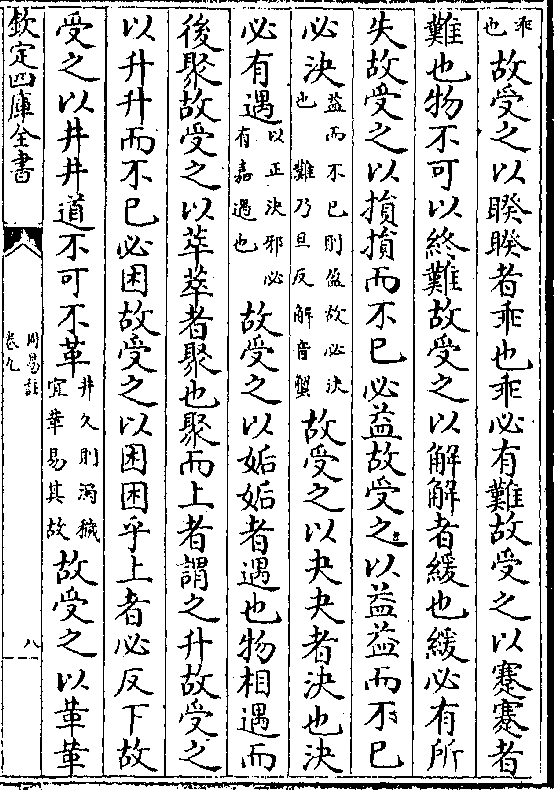 乖也故受之以睽睽者乖也乖必有難故受之以蹇蹇者
難也物不可以終難故受之以解解者緩也緩必有所
失故受之以損損而不已必益故受之以益益而不已
必決益而不已則盈故必決也難乃旦反解音蟹故受之以夬夬者決也決
必有遇以正決邪必有嘉遇也故受之以姤姤者遇也物相遇而
後聚故受之以萃萃者聚也聚而上者謂之升故受之
以升升而不已必困故受之以困困乎上者必反下故
受之以井井道不可不革井久則濁穢宜革易其故故受之以革革
欽定四庫全書
周易註
卷九
八